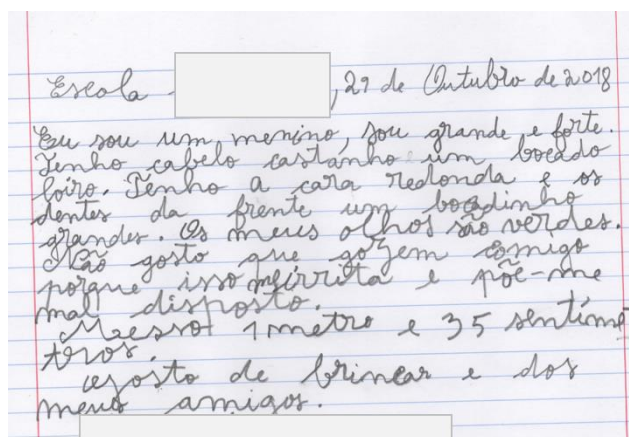 Escola , 29 de Outubro de 2018
Eu sou um menino, sou grande e forte.
Tenho cabelo castanho um bocado
loiro. Tenho a cara redonda e os
dentes da frente um bocadinho
grandes. Os meus olhos são verdes.
Não gosto que gozem comigo
porque isso meirrita e põe-me
mal disposto.
Messo 1 metro e 35 sentíme
tros.
gosto de brincar e dos
meus amigos.